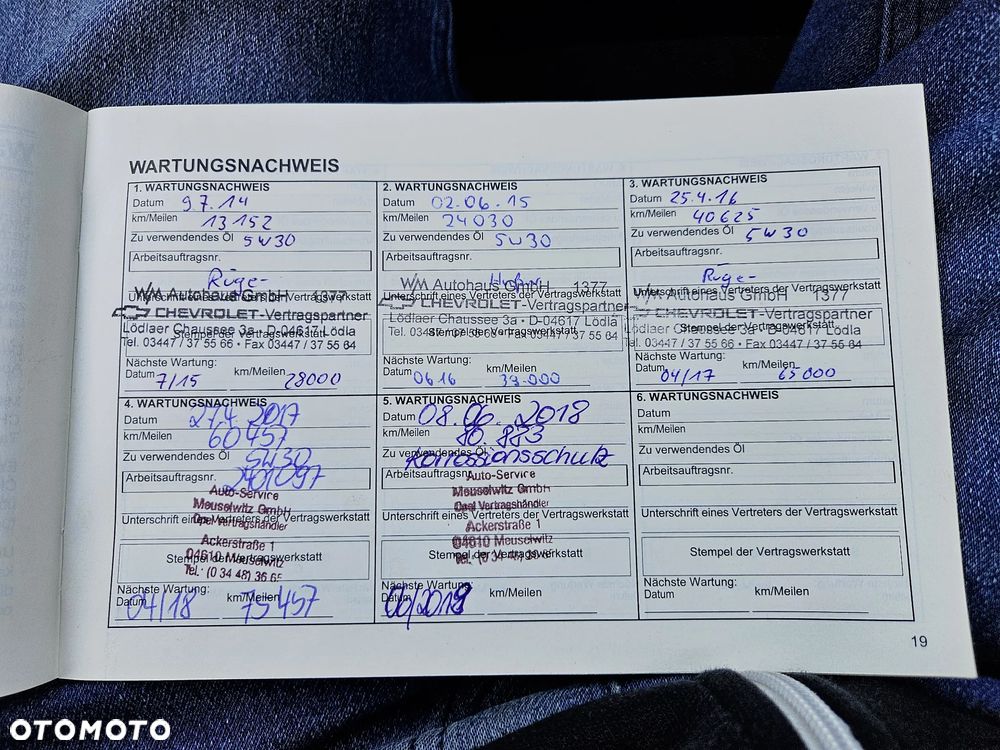 WARTUNGSNACHWEIS
1. WARTUNGSNACHWEIS
Datum 9 7. 14
km/Meilen 13 152
Zu verwendendes Öl 5W30
Arbeitsauftragsnr.
Rüge-
W/M Autohaus GmbH 1377
Unterschrift eines Vertreters der Vertragswerkstatt
CHEVROLET-Vertragspartner
Lödlaer Chaussee 3a • D-04617 Lödla
Stempel der Vertragswerkstatt
Tel. 03447 / 37 55 66 • Fax 03447 / 37 55 64
Nächste Wartung:
Datum km/Meilen
7/15 28000
2. WARTUNGSNACHWEIS
Datum 02.06.15
km/Meilen 24030
Zu verwendendes Öl 5W30
Arbeitsauftragsnr.
W/M Autohaus GmbH 1377
Unterschrift eines Vertreters der Vertragswerkstatt
CHEVROLET-Vertragspartner
Lödlaer Chaussee 3a • D-04617 Lödla
Stempel der Vertragswerkstatt
Tel. 03447 / 37 55 66 • Fax 03447 / 37 55 64
Nächste Wartung:
Datum km/Meilen
06 16 39.000
3. WARTUNGSNACHWEIS
Datum 25.4.16
km/Meilen 40625
Zu verwendendes Öl 5W30
Arbeitsauftragsnr.
Rüge-
Unterschrift eines Vertreters der Vertragswerkstatt
W/M Autohaus GmbH 1377
CHEVROLET-Vertragspartner
Lödlaer Chaussee 3a • D-04617 Lödla
Stempel der Vertragswerkstatt
Tel. 03447 / 37 55 66 • Fax 03447 / 37 55 64
Nächste Wartung:
Datum km/Meilen
04/17 65000
4. WARTUNGSNACHWEIS
Datum 27.4.2017
km/Meilen 60457
Zu verwendendes Öl 5W30
Arbeitsauftragsnr.
Auto-Service
Meuselwitz GmbH
Unterschrift eines Vertreters der Vertragswerkstatt
Opel Vertragshändler
Ackerstraße 1
04610 Meuselwitz
Stempel der Vertragswerkstatt
Tel.: (0 34 48) 36 65
Nächste Wartung:
Datum km/Meilen
04/18 75457
5. WARTUNGSNACHWEIS
Datum 08.06.2018
km/Meilen 80.883
Zu verwendendes Öl
Korrossionsschutz
Arbeitsauftragsnr.
Auto-Service
Meuselwitz GmbH
Opel Vertragshändler
Unterschrift eines Vertreters der Vertragswerkstatt
Ackerstraße 1
04610 Meuselwitz
Stempel der Vertragswerkstatt
Nächste Wartung:
Datum km/Meilen
6. WARTUNGSNACHWEIS
Datum
km/Meilen
Zu verwendendes Öl
Arbeitsauftragsnr.
Unterschrift eines Vertreters der Vertragswerkstatt
Stempel der Vertragswerkstatt
Nächste Wartung:
Datum km/Meilen
19
OTOMOTO